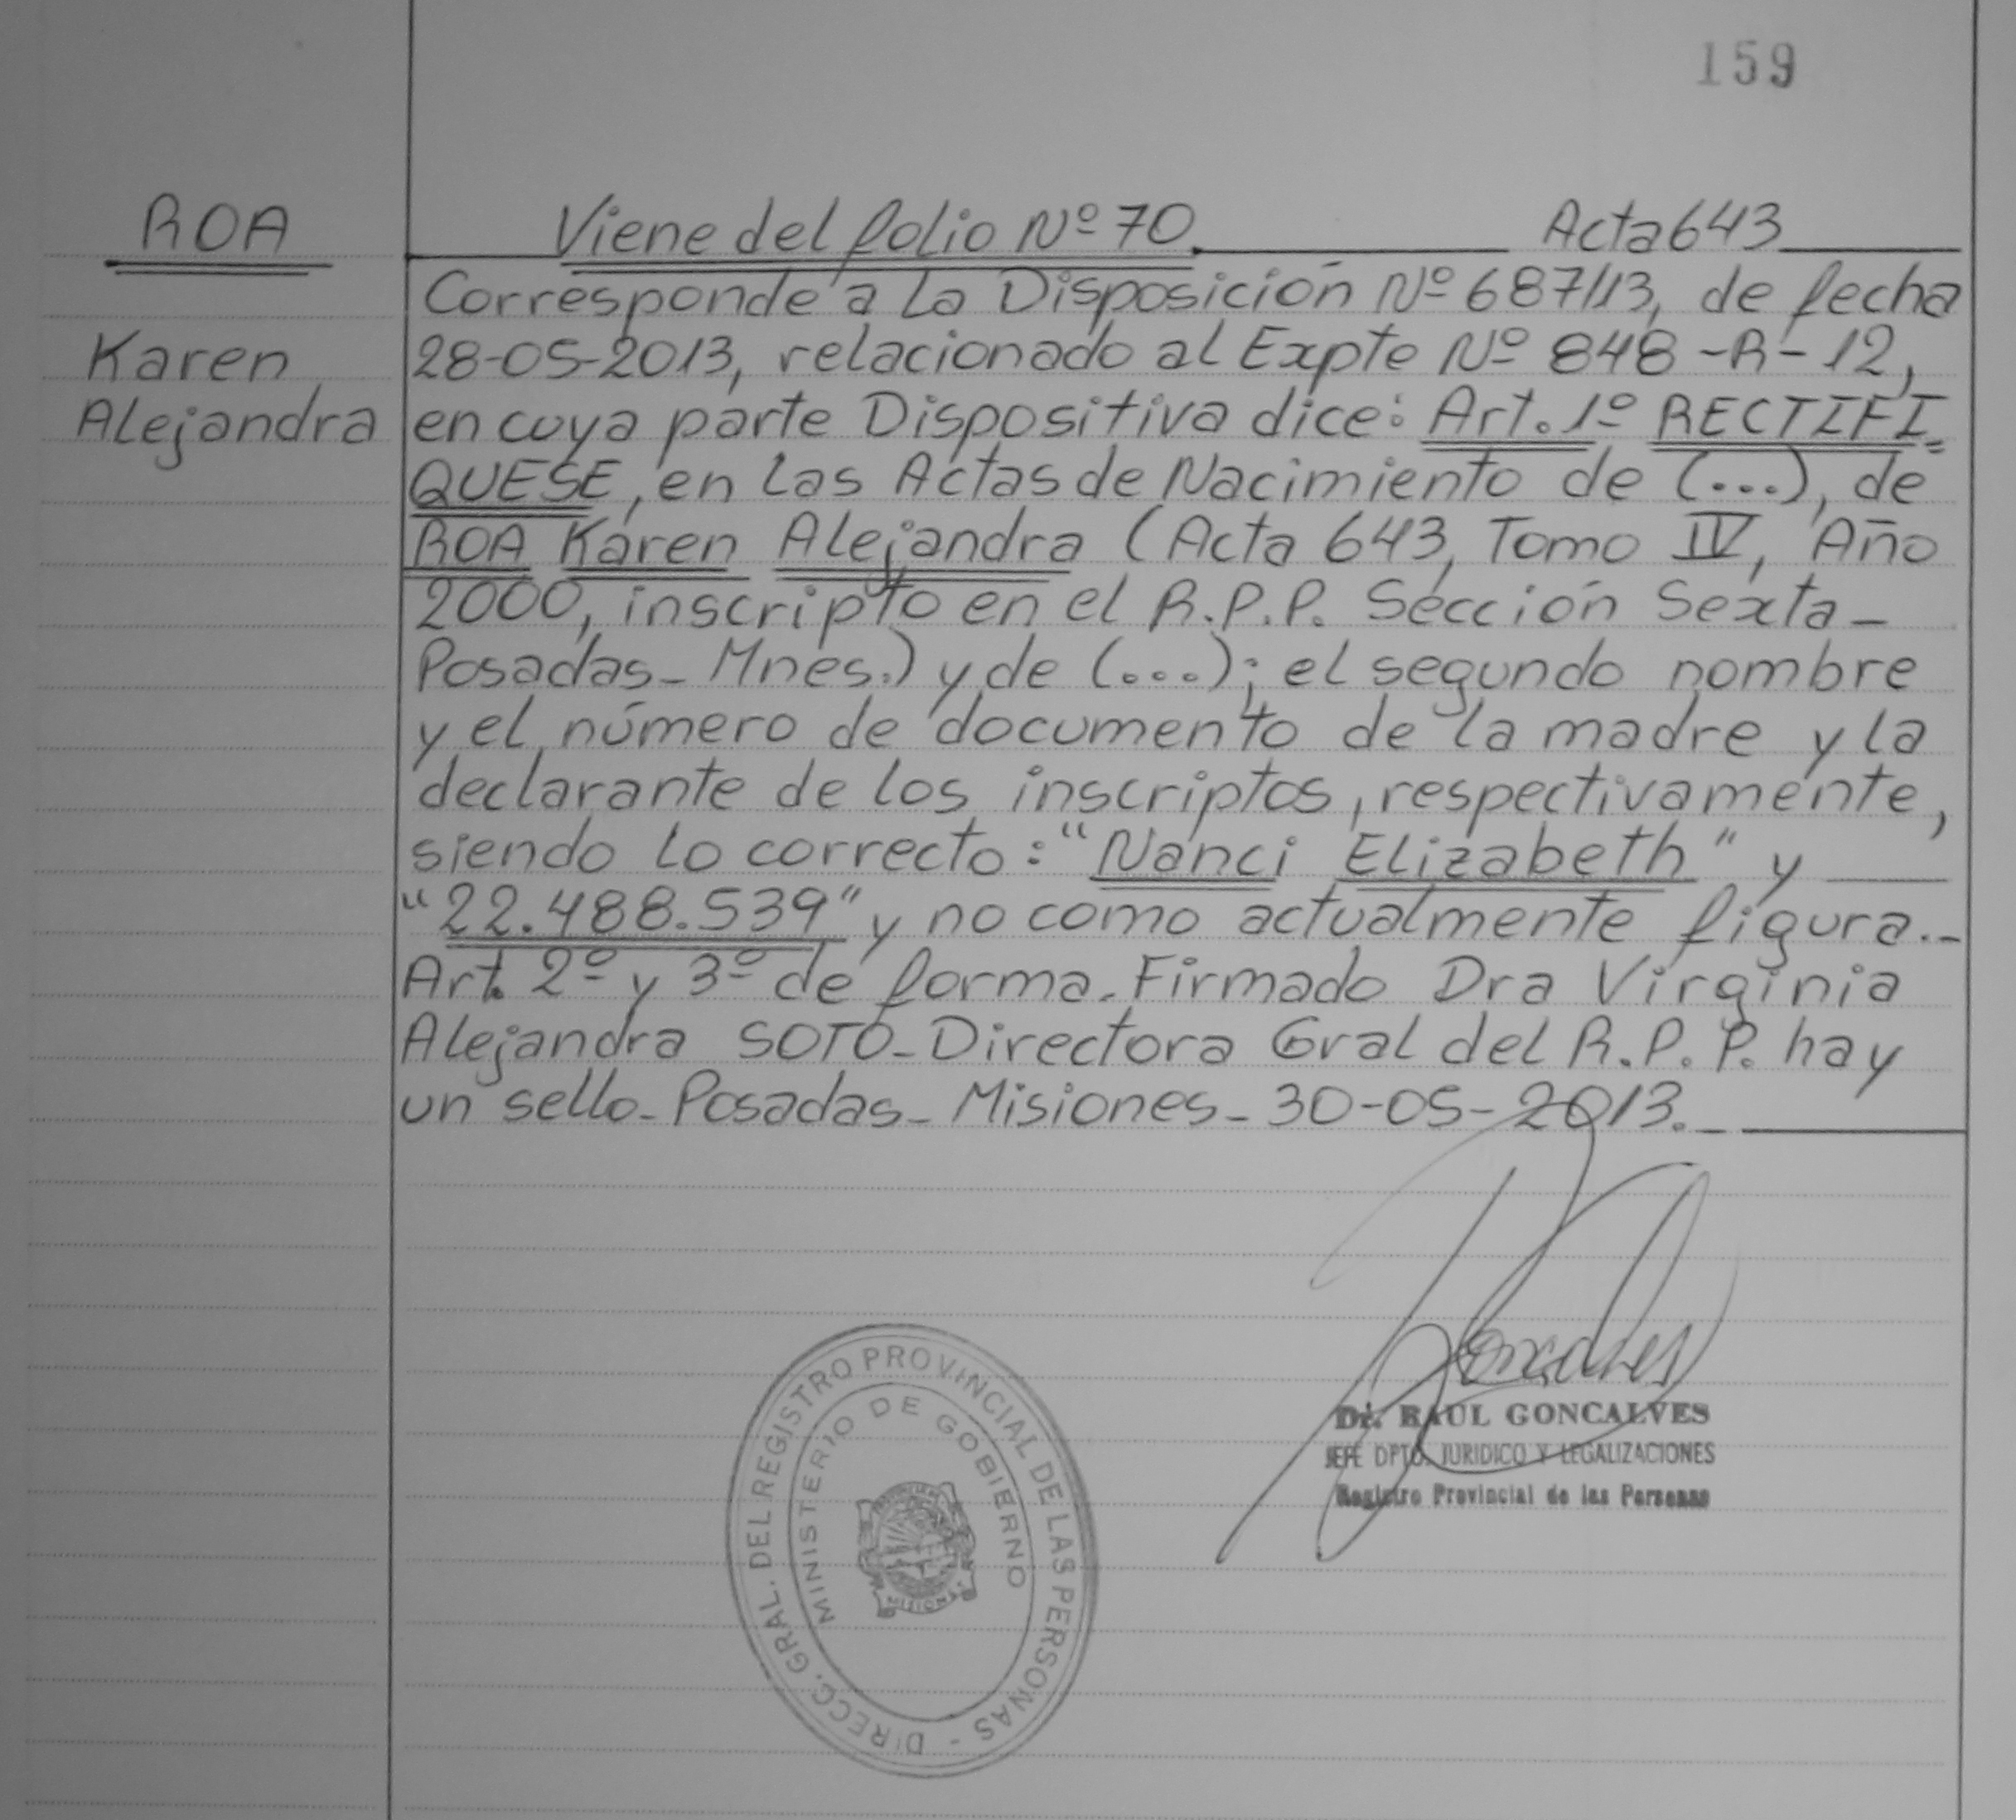 159
ROA
Karen
Alejandra
Viene del folio Nº 70 Acta 643
Corresponde a la Disposición Nº 687/13, de fecha
28-05-2013, relacionado al Expte Nº 848-R-12,
en cuya parte Dispositiva dice: Art. 1º RECTIFI=
QUESE, en las Actas de Nacimiento de (...), de
ROA Karen Alejandra (Acta 643, Tomo IV, Año
2000, inscripto en el R.P.P. Sección Sexta-
Posadas- Mnes.) y de (...); el segundo nombre
y el número de documento de la madre y la
declarante de los inscriptos, respectivamente,
siendo lo correcto: "Nanci Elizabeth" y
"22.488.539" y no como actualmente figura.-
Art. 2º y 3º de forma. Firmado Dra Virginia
Alejandra SOTO- Directora Gral del R.P.P. hay
un sello- Posadas- Misiones- 30-05-2013.-
Goncalves
Dr. RAUL GONCALVES
JEFE DPTO. JURIDICO Y LEGALIZACIONES
Registro Provincial de las Personas
DIRECC. GRAL. DEL REGISTRO PROVINCIAL DE LAS PERSONAS -
MINISTERIO DE GOBIERNO
PROVINCIA
MISIONES